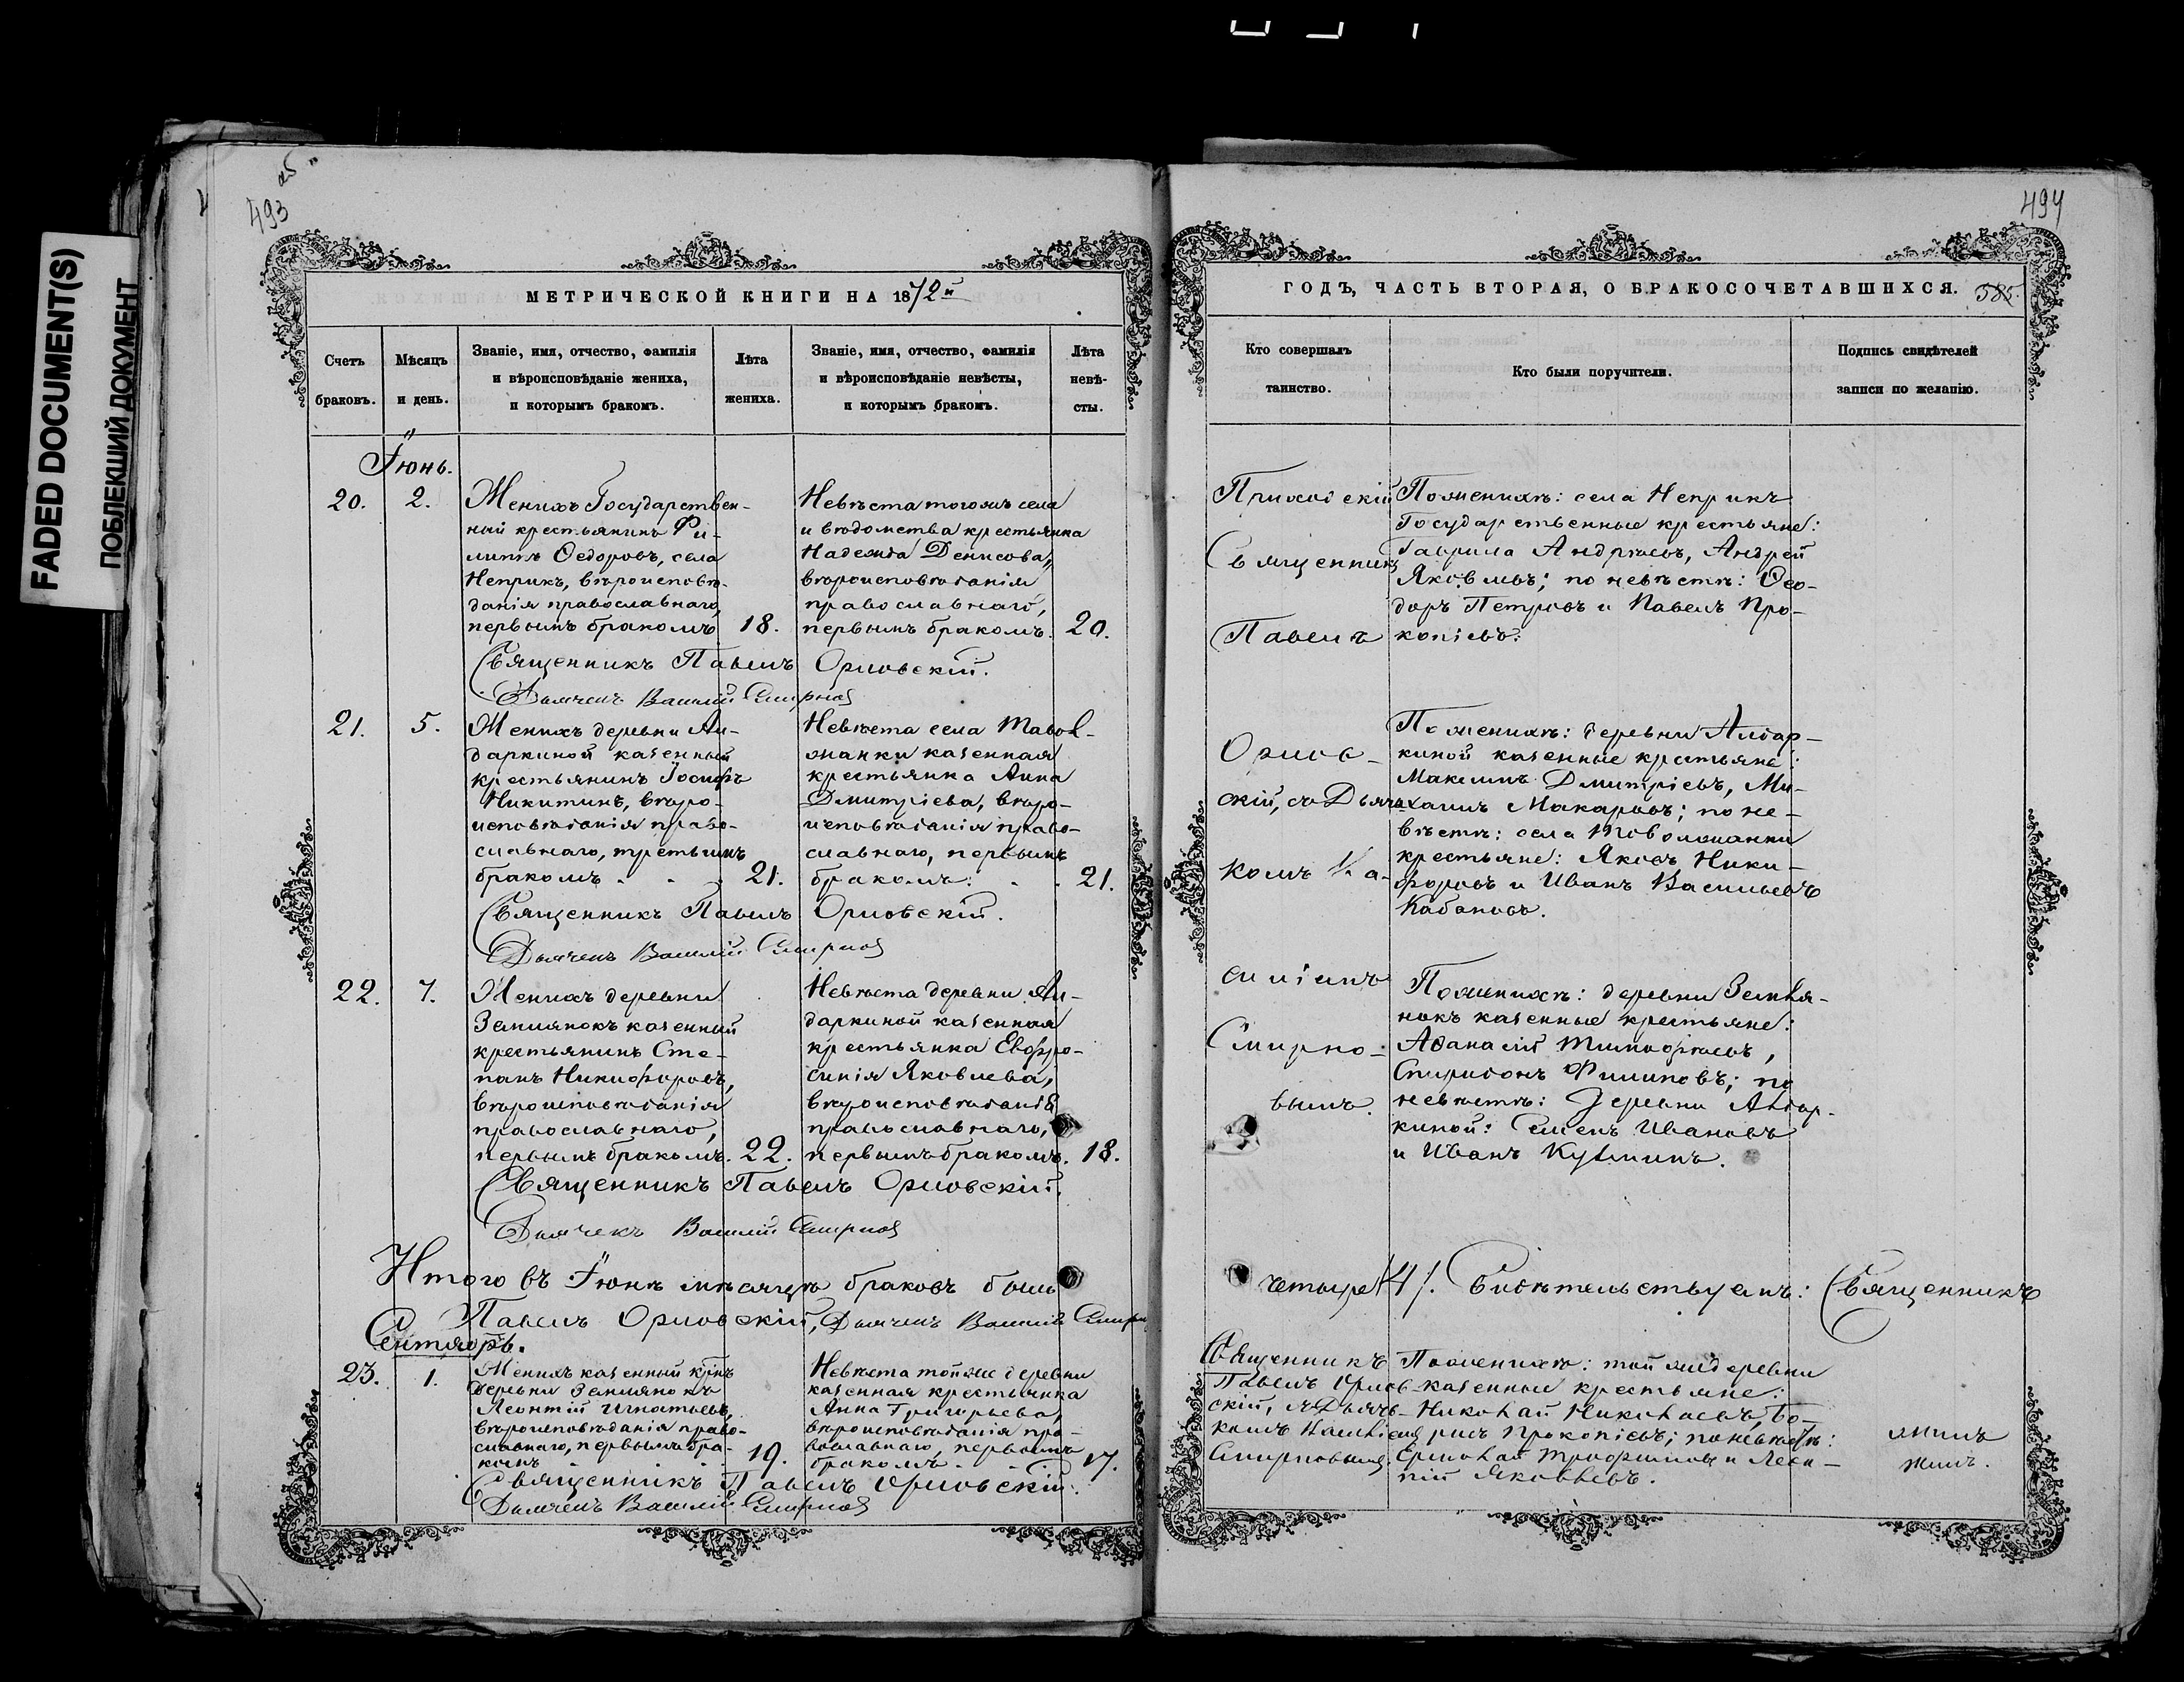 FADED DOCUMENT(S)
ПОБЛЕКШИЙ ДОКУМЕНТ
493
об
МЕТРИЧЕСКОЙ КНИГИ НА 1872й
Счетъ
браковъ.
Мѣсяцъ
и день.
Званіе, имя, отчество, фамилія
и вѣроисповѣданіе жениха,
и которымъ бракомъ.
Лѣта
жениха.
Званіе, имя, отчество, фамилія
и вѣроисповѣданіе невѣсты,
и которымъ бракомъ.
Лѣта
невѣ-
сты.
Іюнь.
20.
2.
Женихъ Государствен-
ный крестьянинъ Фи-
липпъ Ѳедоровъ, села
Неприкъ, вѣроисповѣ-
данія православнаго,
первымъ бракомъ
18.
Невѣста тогожъ села
и вѣдомства крестьянка
Надежда Денисова,
вѣроисповѣданія
православнаго,
первымъ бракомъ.
20.
Священникъ Павелъ Орловскій.
Дьячекъ Василій Смирновъ
21.
5.
Женихъ деревни Ал-
даркиной казенный
крестьянинъ Іосифъ
Никитинъ, вѣро-
исповѣданія право-
славнаго, третьимъ
бракомъ
21.
Невѣста села Тавол-
жанки казенная
крестьянка Анна
Дмитріева, вѣро-
исповѣданія право-
славнаго, первымъ
бракомъ.
21.
Священникъ Павелъ Орловскій.
Дьячекъ Василій Смирновъ
22.
7.
Женихъ деревни
Землянокъ казенный
крестьянинъ Сте-
панъ Никифоровъ,
вѣроисповѣданія
православнаго,
первымъ бракомъ.
22.
Невѣста деревни Ал-
даркиной казенная
крестьянка Евфро-
синія Яковлева,
вѣроисповѣданія
православнаго,
первымъ бракомъ.
18.
Священникъ Павелъ Орловскій.
Дьячекъ Василій Смирновъ
Итого въ Іюнѣ мѣсяцѣ браковъ было
Павелъ Орловскій, Дьячекъ Василій Смирн
Сентябрь.
23.
1.
Женихъ казенный крнъ
деревни Землянокъ
Леонтій Игнатьевъ,
вѣроисповѣданія право-
славнаго, первымъ бра-
комъ
19.
Невѣста тойже деревни
казенная крестьянка
Анна Григорьева,
вѣроисповѣданія пра-
вославнаго, первымъ
бракомъ.
17.
Священникъ Павелъ Орловскій.
Дьячекъ Василій Смирновъ
494
ГОДЪ, ЧАСТЬ ВТОРАЯ, О БРАКОСОЧЕТАВШИХСЯ.
585.
Кто совершалъ
таинство.
Кто были поручители.
Подпись свидѣтелей
записи по желанію.
Приходскій
Священникъ
Павелъ
Орлов-
скій, съ Дьяч-
комъ Ва-
силіемъ
Смирно-
вымъ.
По женихѣ: села Неприкъ
Государственные крестьяне:
Гаврила Андреевъ, Андрей
Яковлевъ; по невѣстѣ: Ѳео-
доръ Петровъ и Павелъ Про-
копіевъ.
По женихѣ: деревни Алдар-
киной казенные крестьяне:
Максимъ Дмитріевъ, Ми-
хаилъ Макаровъ; по не-
вѣстѣ: села Товолжанки
крестьяне: Яковъ Ники-
форовъ и Иванъ Васильевъ
Кабановъ.
По женихѣ: деревни Земля-
нокъ казенные крестьяне:
Аѳанасій Тимофеевъ,
Спиридонъ Филиповъ; по
невѣстѣ: деревни Алдар-
киной: Семенъ Ивановъ
и Иванъ Кузминъ.
четыре /4/. Свидѣтельствуемъ: Священникъ
Священникъ
Павелъ Орлов-
скій, съ Дьяч-
комъ Василіемъ
Смирновымъ.
По женихѣ: той же деревни
казенные крестьяне:
Николай Николаевъ, Бо-
рисъ Прокопіевъ; по невѣстѣ:
Ермолай Трофимовъ и Леон-
тій Яковлевъ.